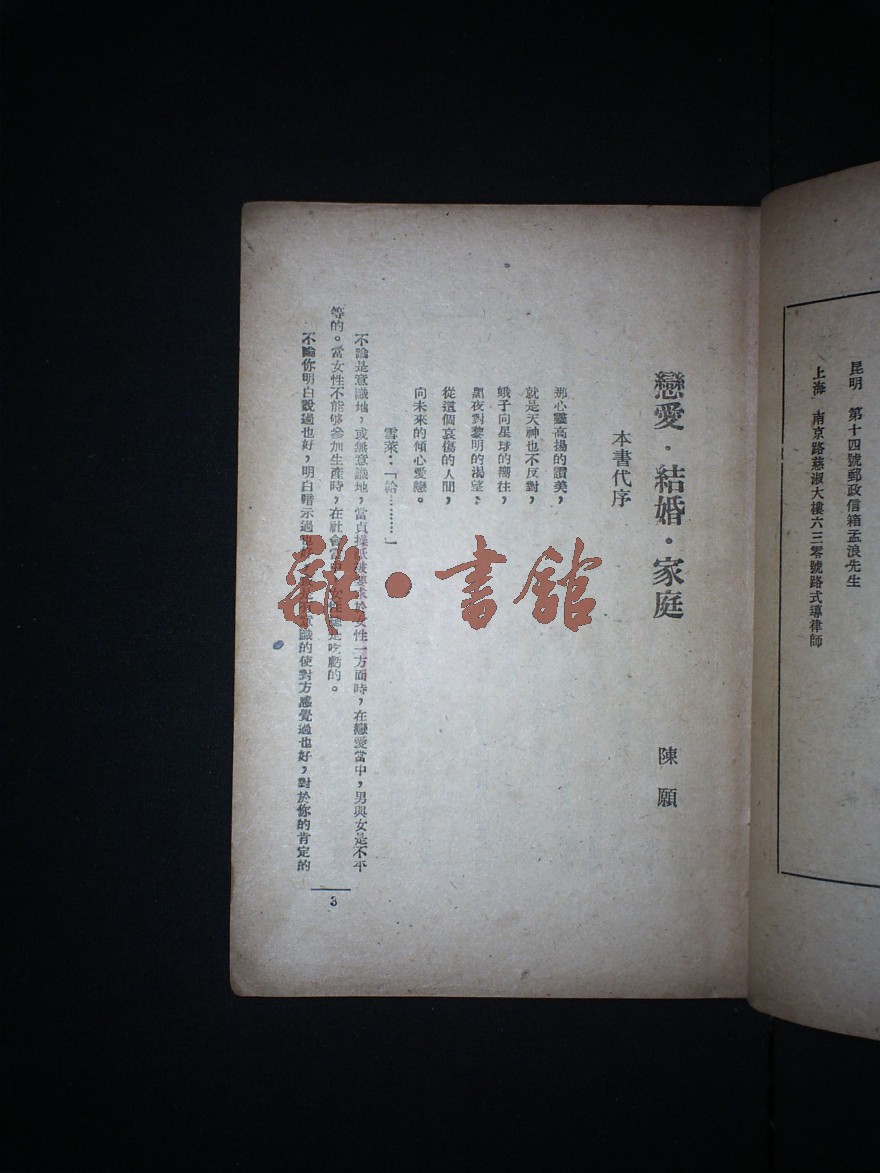 昆明　第十四號郵政信箱孟浪先生
上海　南京路慈淑大樓六三零號路式導律師
戀愛・結婚・家庭
陳願
本書代序
那心靈高揚的讚美，
就是天神也不反對，
蛾子向星球的嚮往，
黑夜對黎明的渴望，
從這個哀傷的人間，
向未來的傾心愛戀。
雪萊：「給…………」
不論是意識地，或無意識地，當貞操祇被要求於女性一方面時，在戀愛當中，男與女是不平
等的。當女性不能够參加生產時，在社會當中，女性總是吃虧的。
不論你明白說過也好，明白暗示過也好，意識的使對方感覺過也好，對於你的肯定的
3
雜・書館